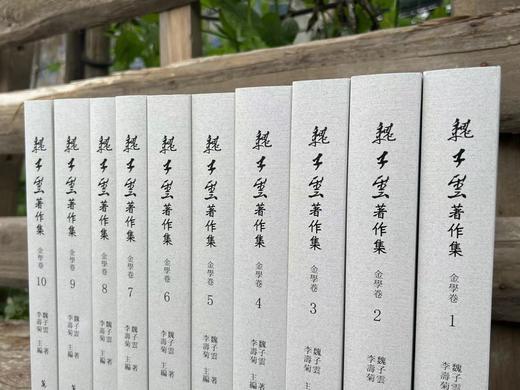 魏子雲著作集 金學卷 1
魏子雲
李壽菊
魏子雲著作集 金學卷 2
魏子雲
李壽菊
魏子雲著作集 金學卷 3
魏子雲
李壽菊
魏子雲著作集 金學卷 4
魏子雲
李壽菊
魏子雲著作集 金學卷 5
魏子雲
李壽菊
魏子雲著作集 金學卷 6
魏子雲 著
李壽菊 主編
魏子雲著作集 金學卷 7
魏子雲 著
李壽菊 主編
魏子雲著作集 金學卷 8
魏子雲 著
李壽菊 主編
魏子雲著作集 金學卷 9
魏子雲 著
李壽菊 主編
萬
魏子雲著作集 金學卷 10
魏子雲 著
李壽菊 主編
萬